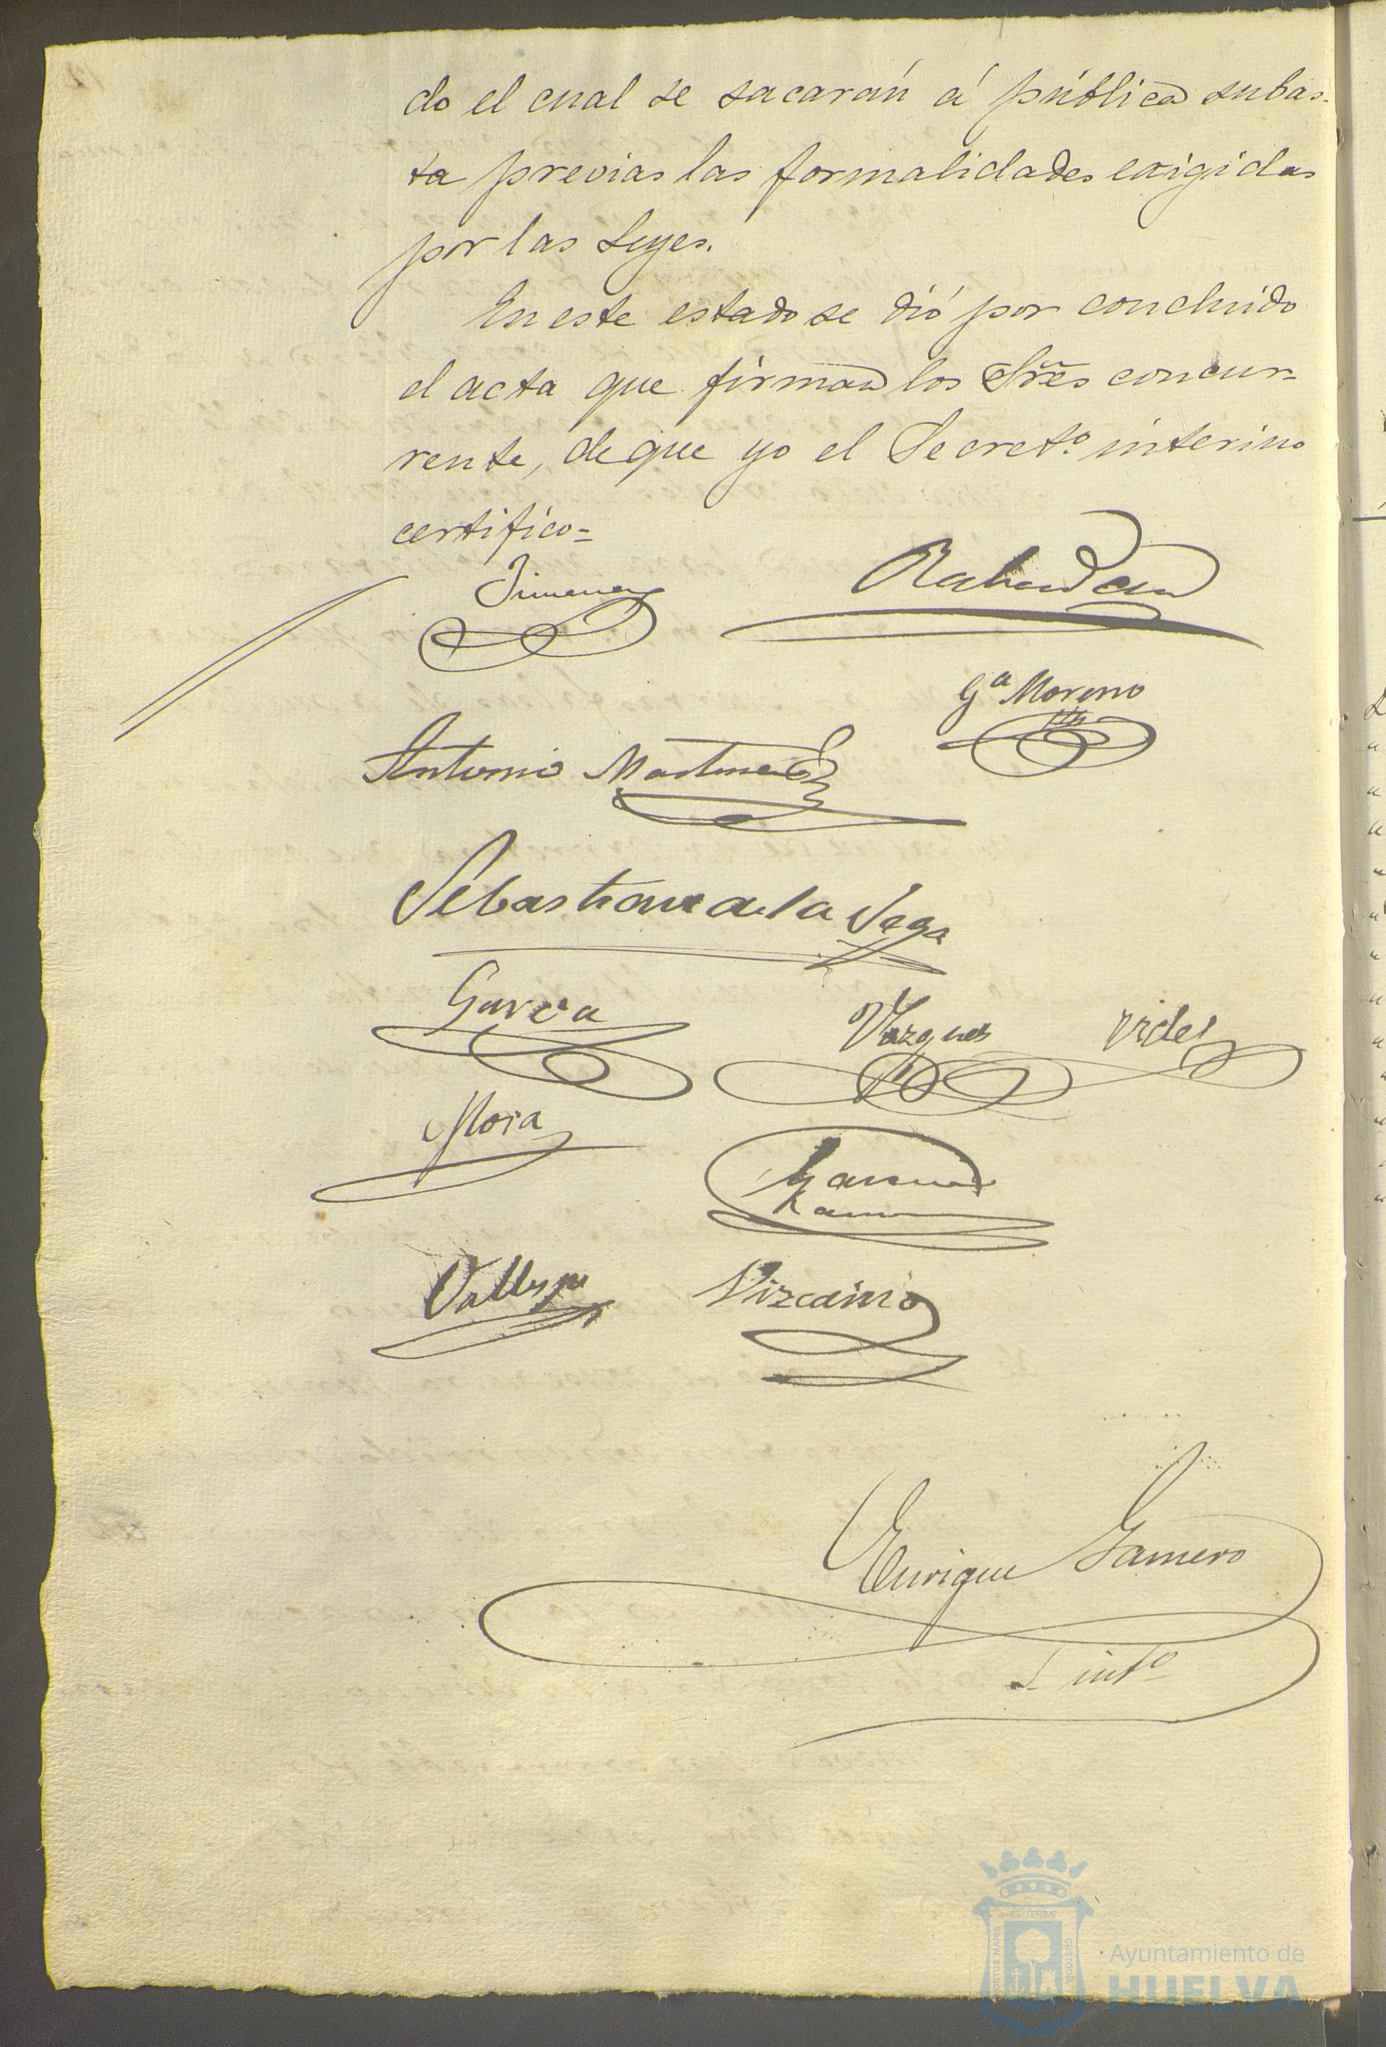 do el cual se sacarán á pública subas-
ta previas las formalidades exigidas
por las Leyes.
En este estado se dió por concluido
el acta que firman los Sres concur-
rente, de que yo el Secret.o interino
certifico=
Jimenez
Gª Moreno
Antonio Martinez
Sebastian de la Vega
Garcia
Vazquez Videl
Mora
Vizcaino
Enrique Gamero
S. intº
Ayuntamiento de
HUELVA